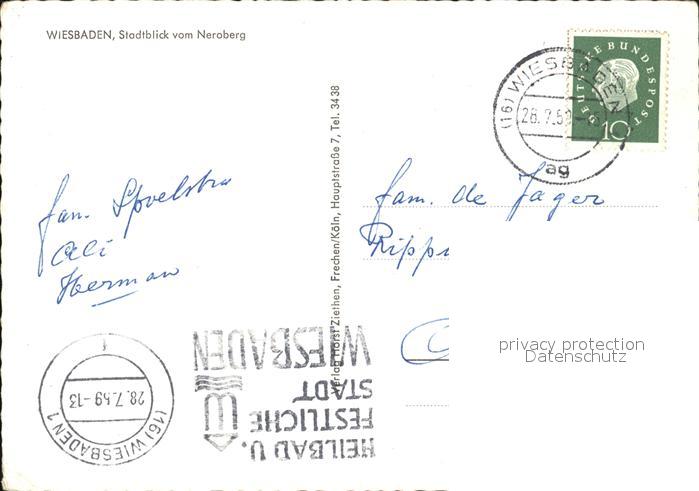 WIESBADEN, Stadtblick vom Neroberg
DEUTSCHE BUNDESPOST
10
(16) WIESBADEN
28.7.59
ag
Verlag Horst Ziethen, Frechen/Köln, Hauptstraße 7, Tel. 3438
fam. Spoelstra
Ali
Herman
fam. de Jager
privacy protection
Datenschutz
HEILBAD U.
FESTLICHE
STADT
WIESBADEN
(16) WIESBADEN 1
28.7.59-13
f